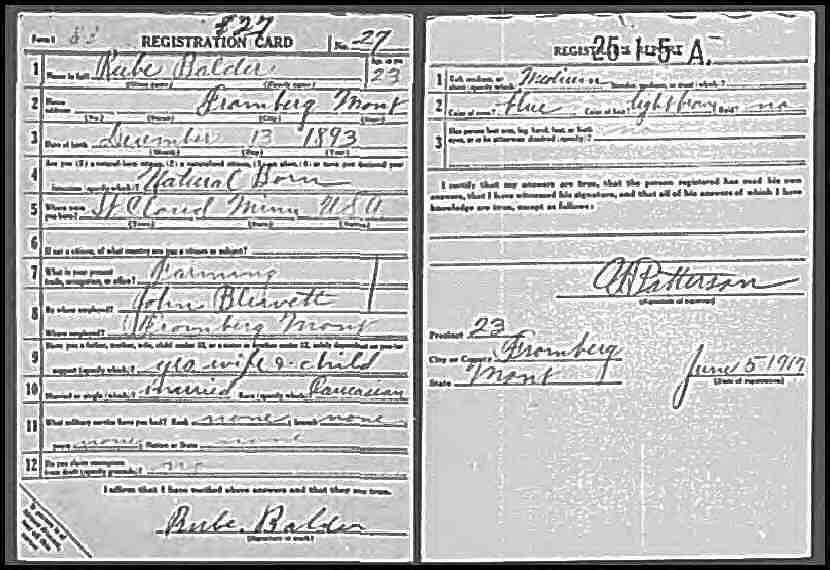 827
Form 1 REGISTRATION CARD No. 27
1 Rube Balder 23
Name in full (Given name) (Family name) Age, in yrs.
2 Home address Fromberg Mont
(No.) (Street) (City) (State)
3 Date of birth December 13 1893
(Month) (Day) (Year)
Are you (1) a natural-born citizen, (2) a naturalized citizen, (3) an alien, (4) or have you declared your
4 intention (specify which)? Natural Born
5 Where were you born? St Cloud Minn USA
(Town) (State) (Nation)
6 If not a citizen, of what country are you a citizen or subject?
7 What is your present trade, occupation, or office? Farming
8 By whom employed? John Blewett
Where employed? Fromberg Mont
9 Have you a father, mother, wife, child under 12, or a sister or brother under 12, solely dependent on you for
support (specify which)? yes wife & child
10 Married or single (which)? married Race (specify which)? Caucasian
11 What military service have you had? Rank none ; branch none
years none ; Nation or State none
12 Do you claim exemption from draft (specify grounds)? no
I affirm that I have verified above answers and that they are true.
Rube Balder
(Signature or mark)
25-1-5 A.
REGISTRAR'S REPORT
1 Tall, medium, or short (specify which)? Medium Slender, medium, or stout (which)?
2 Color of eyes? blue Color of hair? light brown Bald? no
3 Has person lost arm, leg, hand, foot, or both eyes, or is he otherwise disabled (specify)? no
I certify that my answers are true, that the person registered has read his own
answers, that I have witnessed his signature, and that all of his answers of which I have
knowledge are true, except as follows:
Patterson
(Signature of registrar)
Precinct 23
City or County Fromberg
State Mont
June 5 1917
(Date of registration)